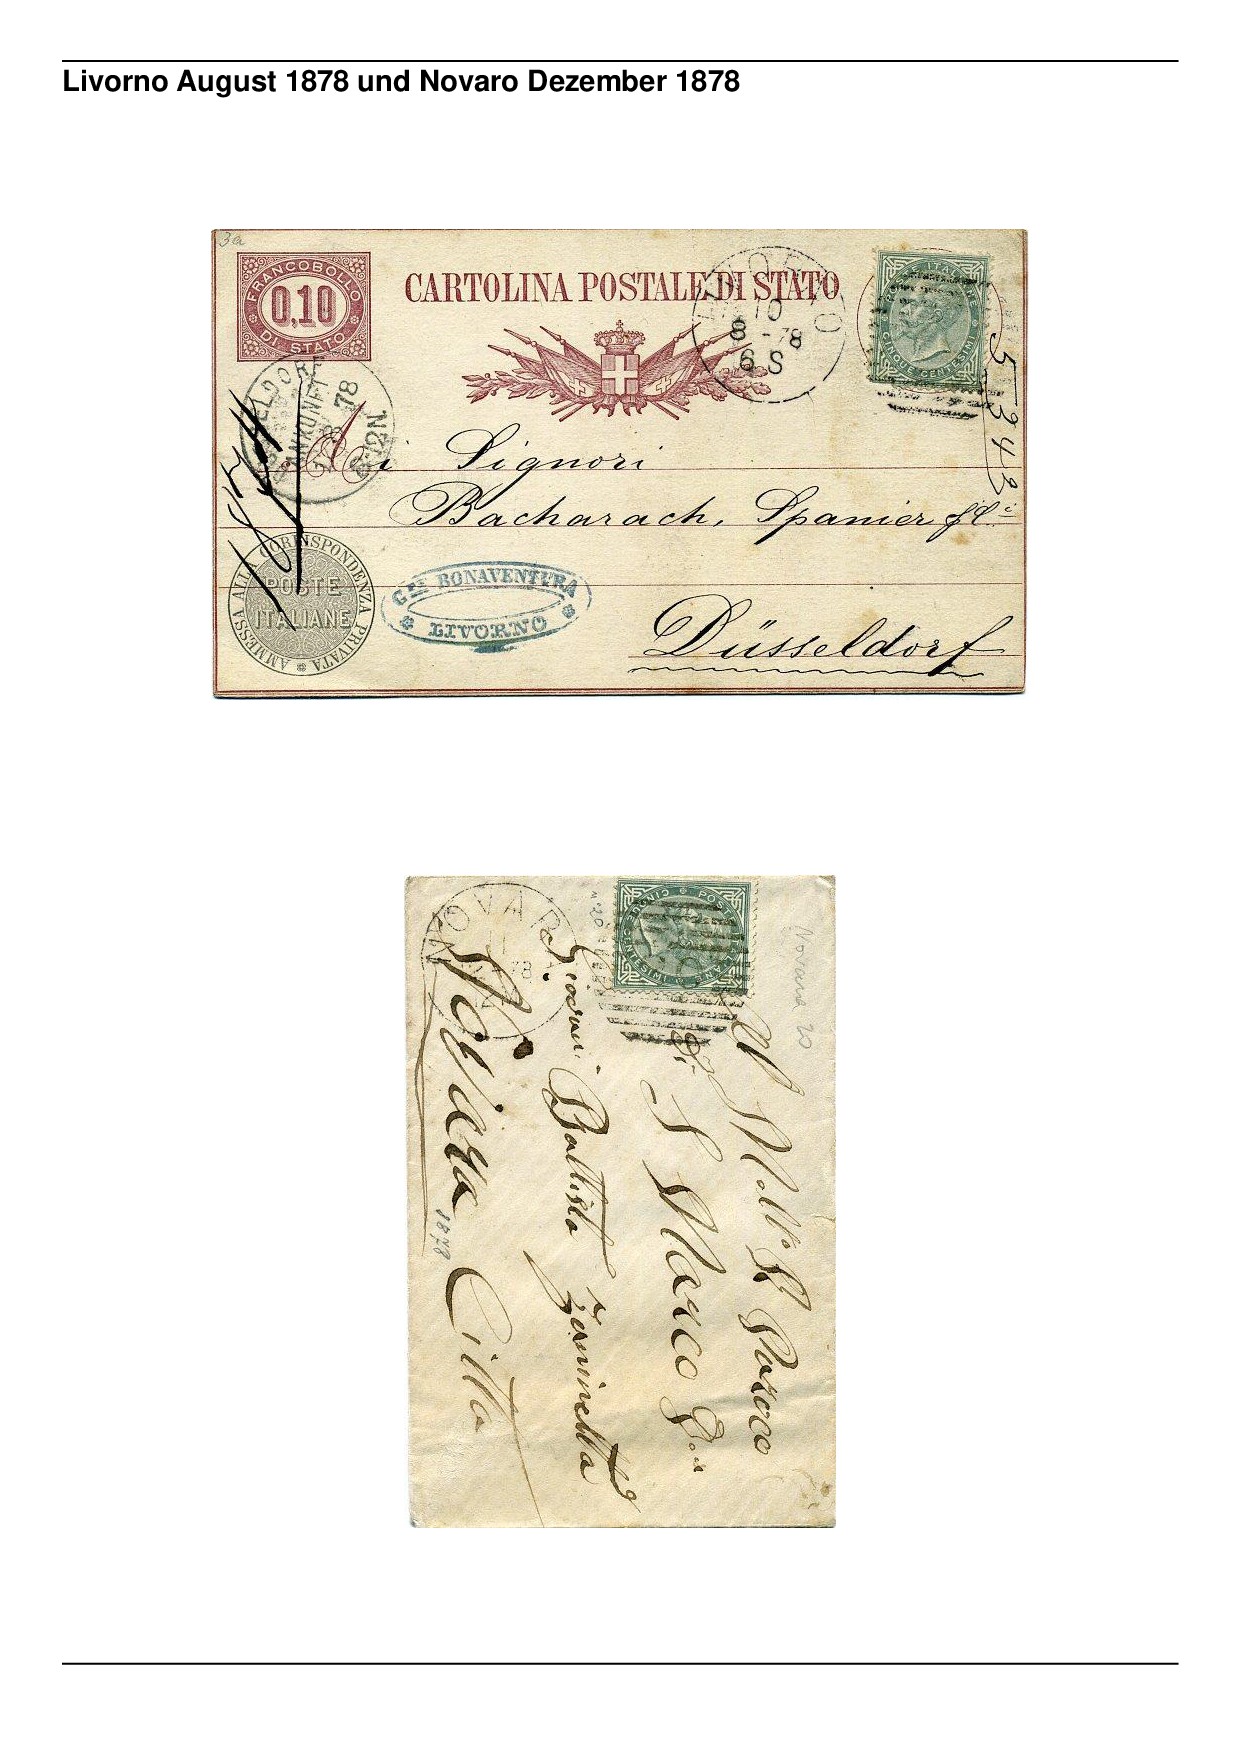 Livorno August 1878 und Novaro Dezember 1878
3a
FRANCOBOLLO
0,10
DI STATO
CARTOLINA POSTALE DI STATO
LIVORNO
10
8 - 78
6 S
POSTE ITALIANE
CINQUE CENTESIMI
5343
ANKUNFT
78
8-12N
Ai Signori
Bacharach, Spanier & C.
AMMESSA ALLA CORRISPONDENZA PRIVATA
POSTE
ITALIANE
BONAVENTURA
LIVORNO
Düsseldorf
Novara 20
POSTE ITALIANE
CINQUE CENTESIMI
NOVARA
78
Al Molto R Paroco
Di S Marco
Giovan Battista
Novara Citta
1878